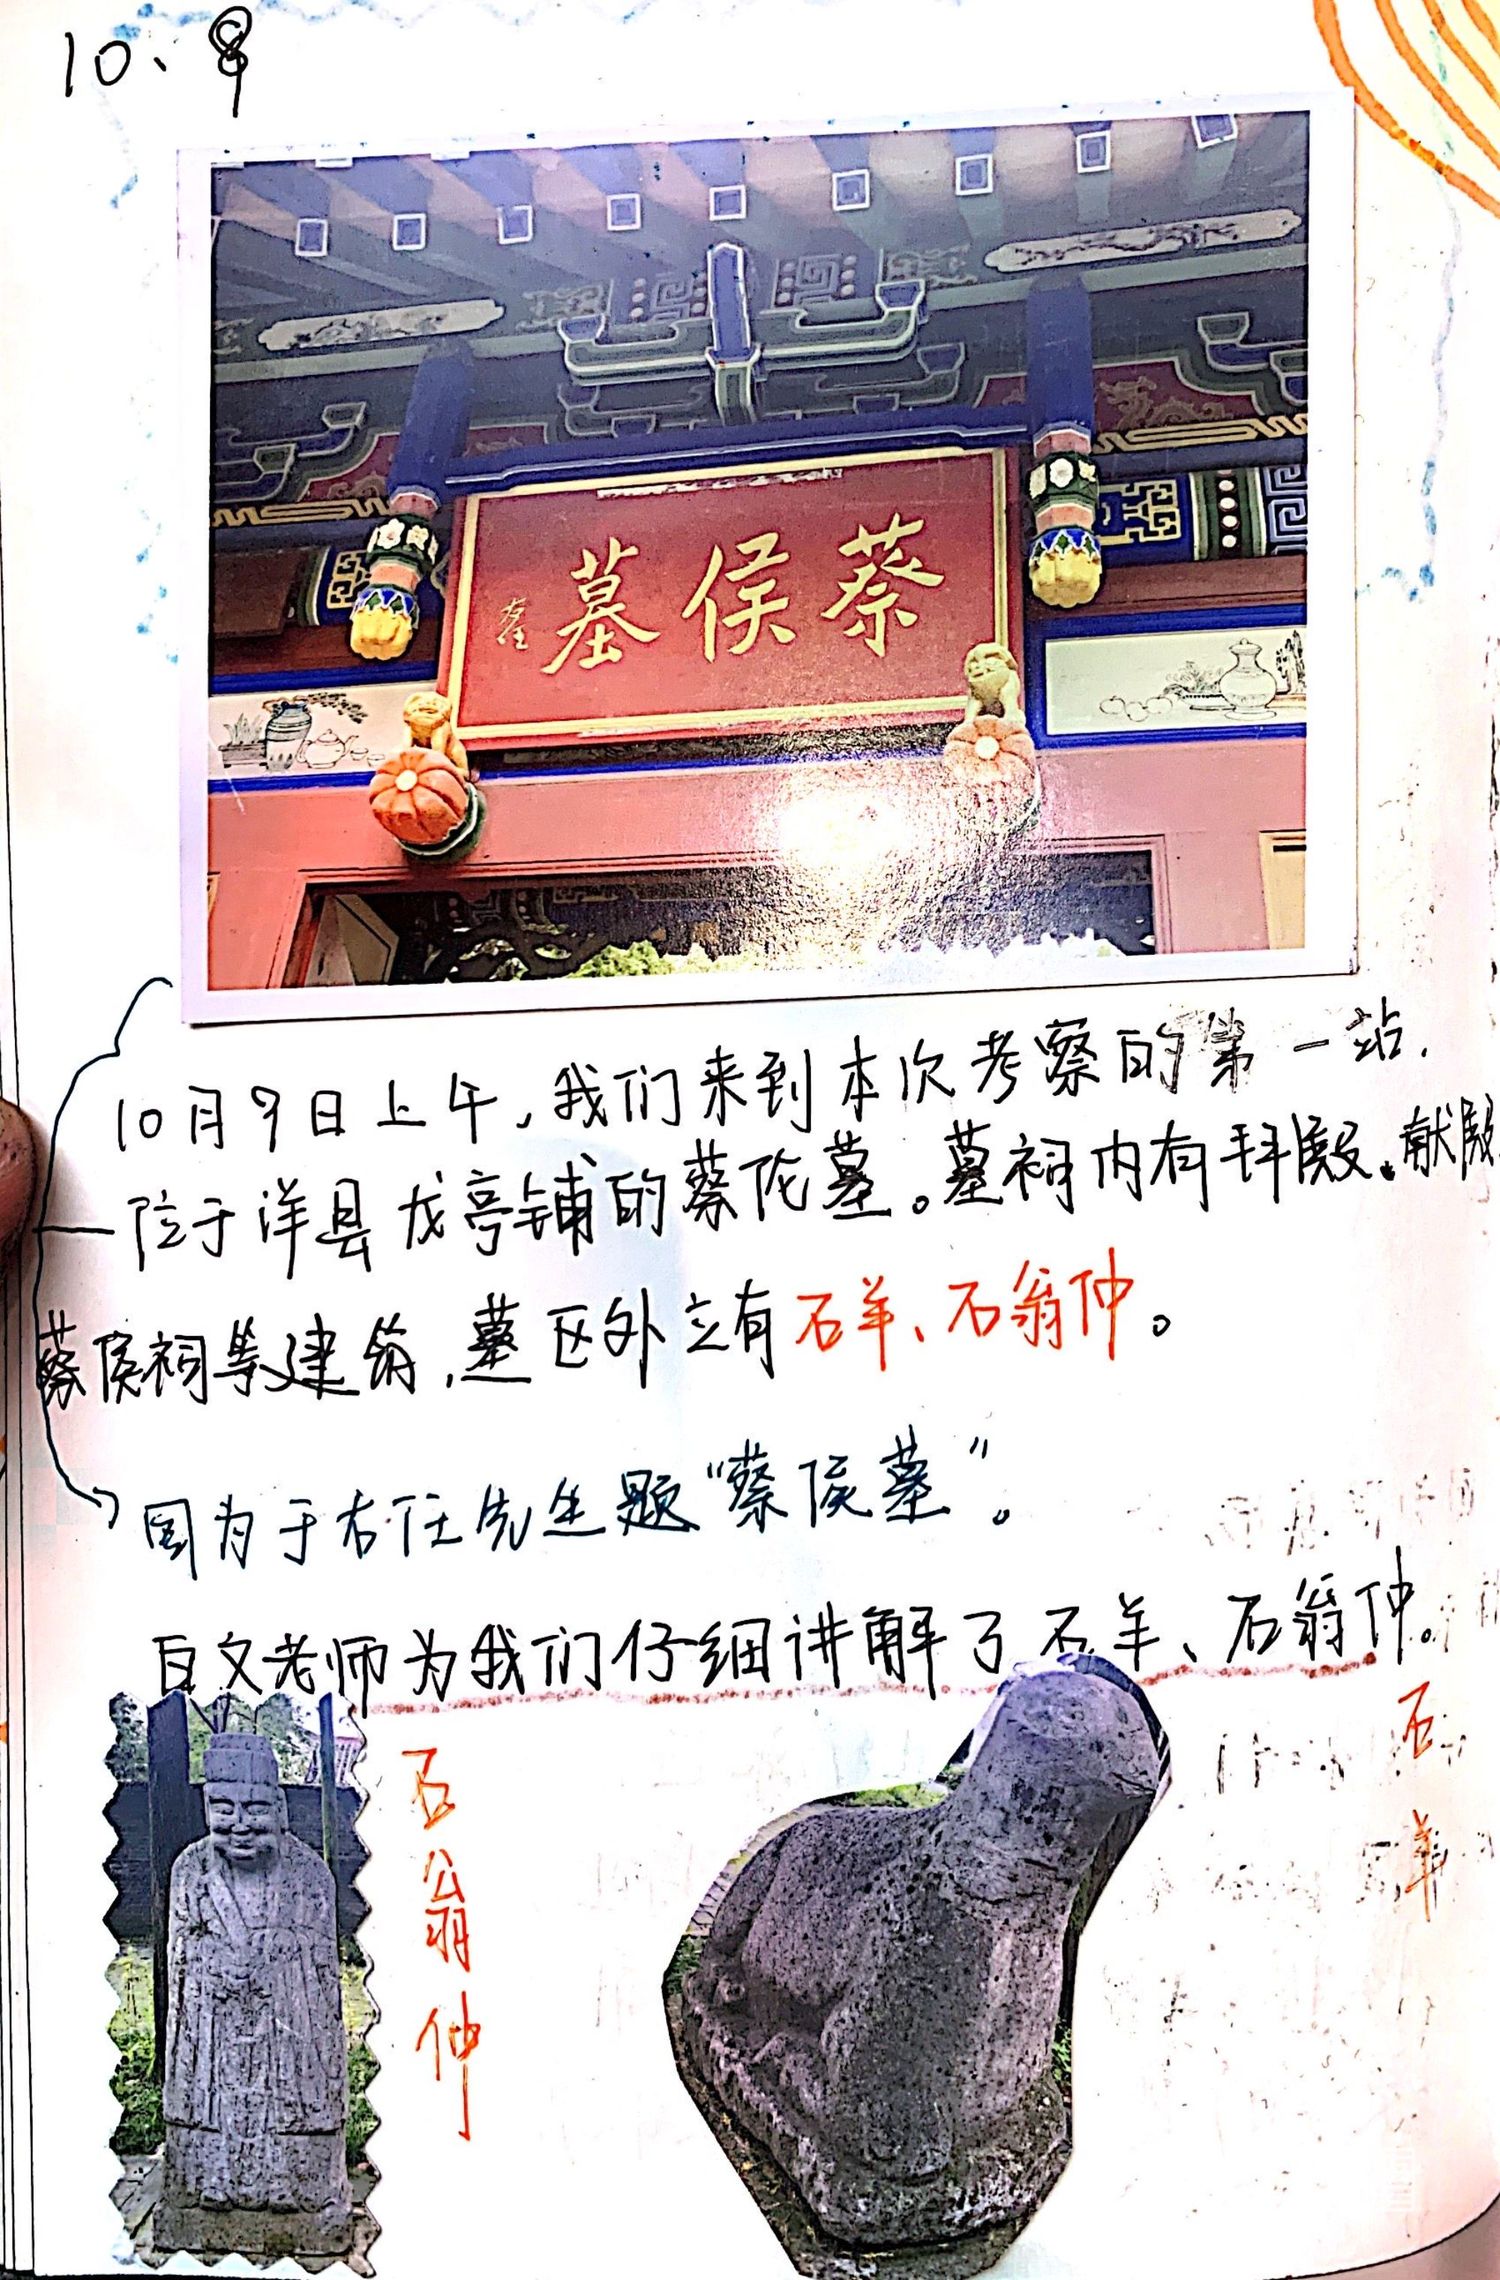 10、9
蔡侯墓
10月9日上午,我们来到本次考察的第一站.
位于洋县龙亭铺的蔡伦墓。墓祠内有拜殿、献殿
蔡侯祠等建筑,墓区外立有石羊、石翁仲。
因为于右任先生题“蔡侯墓”。
白文老师为我们仔细讲解了石羊、石翁仲。
石翁仲
石羊